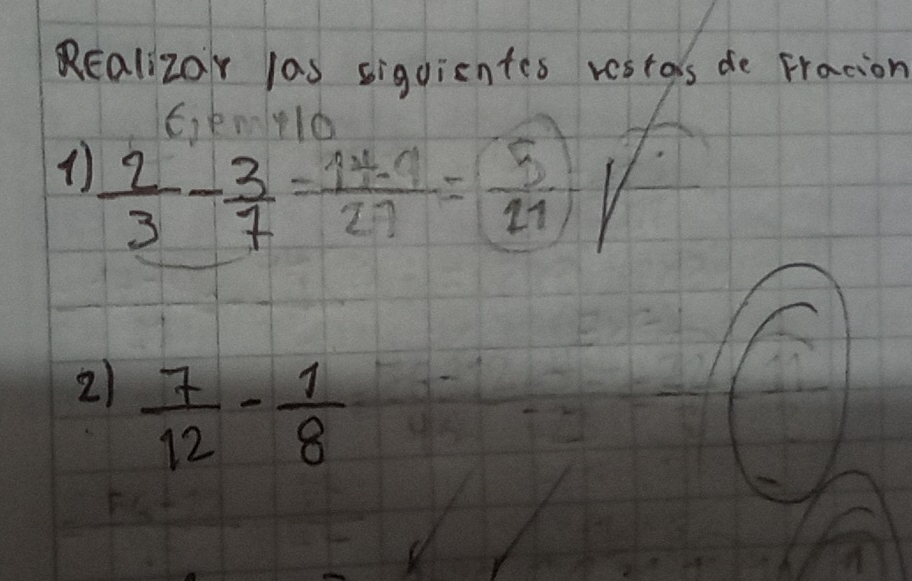 REalizar las siguientes restas de Fracion
Ejemplo
1) 2/3 - 3/7 = 14-9/21 = 5/21
2) 7/12 - 1/8